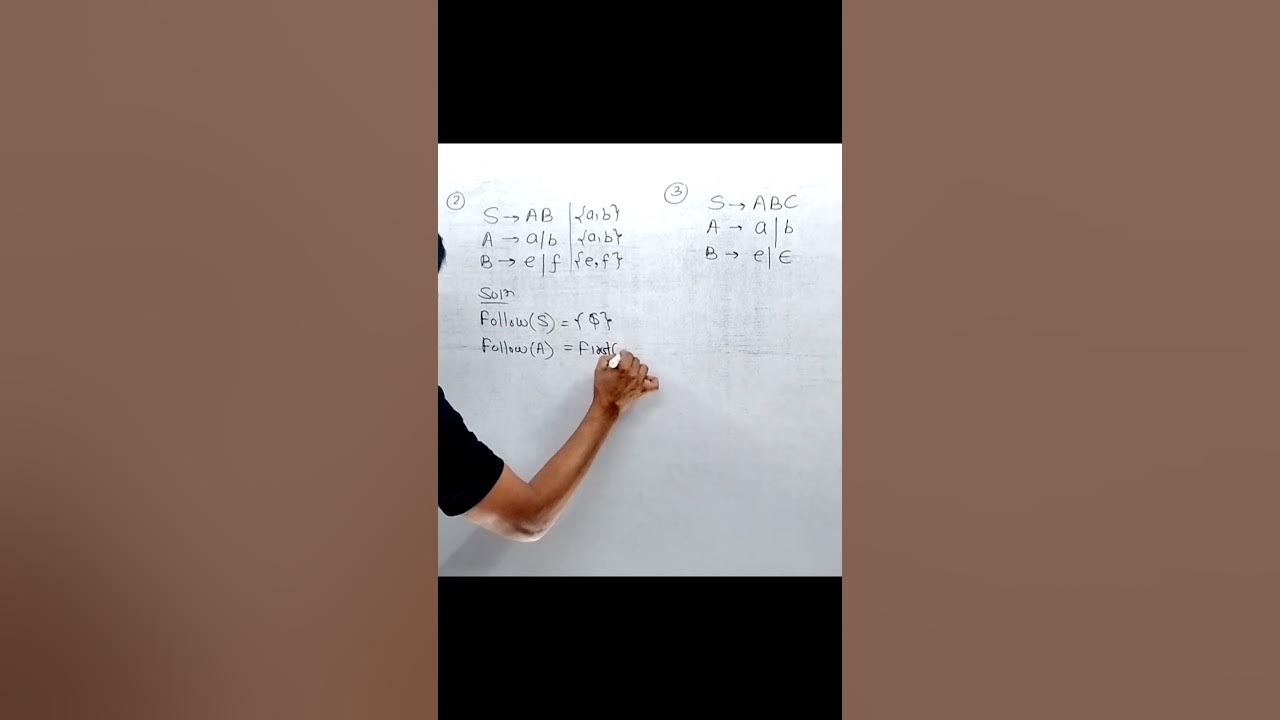 ②
S → AB | {a,b}
A → a|b | {a,b}
B → e|f | {e,f}
Soln
Follow(S) = {$}
Follow(A) = First(
③
S → ABC
A → a|b
B → e|ϵ